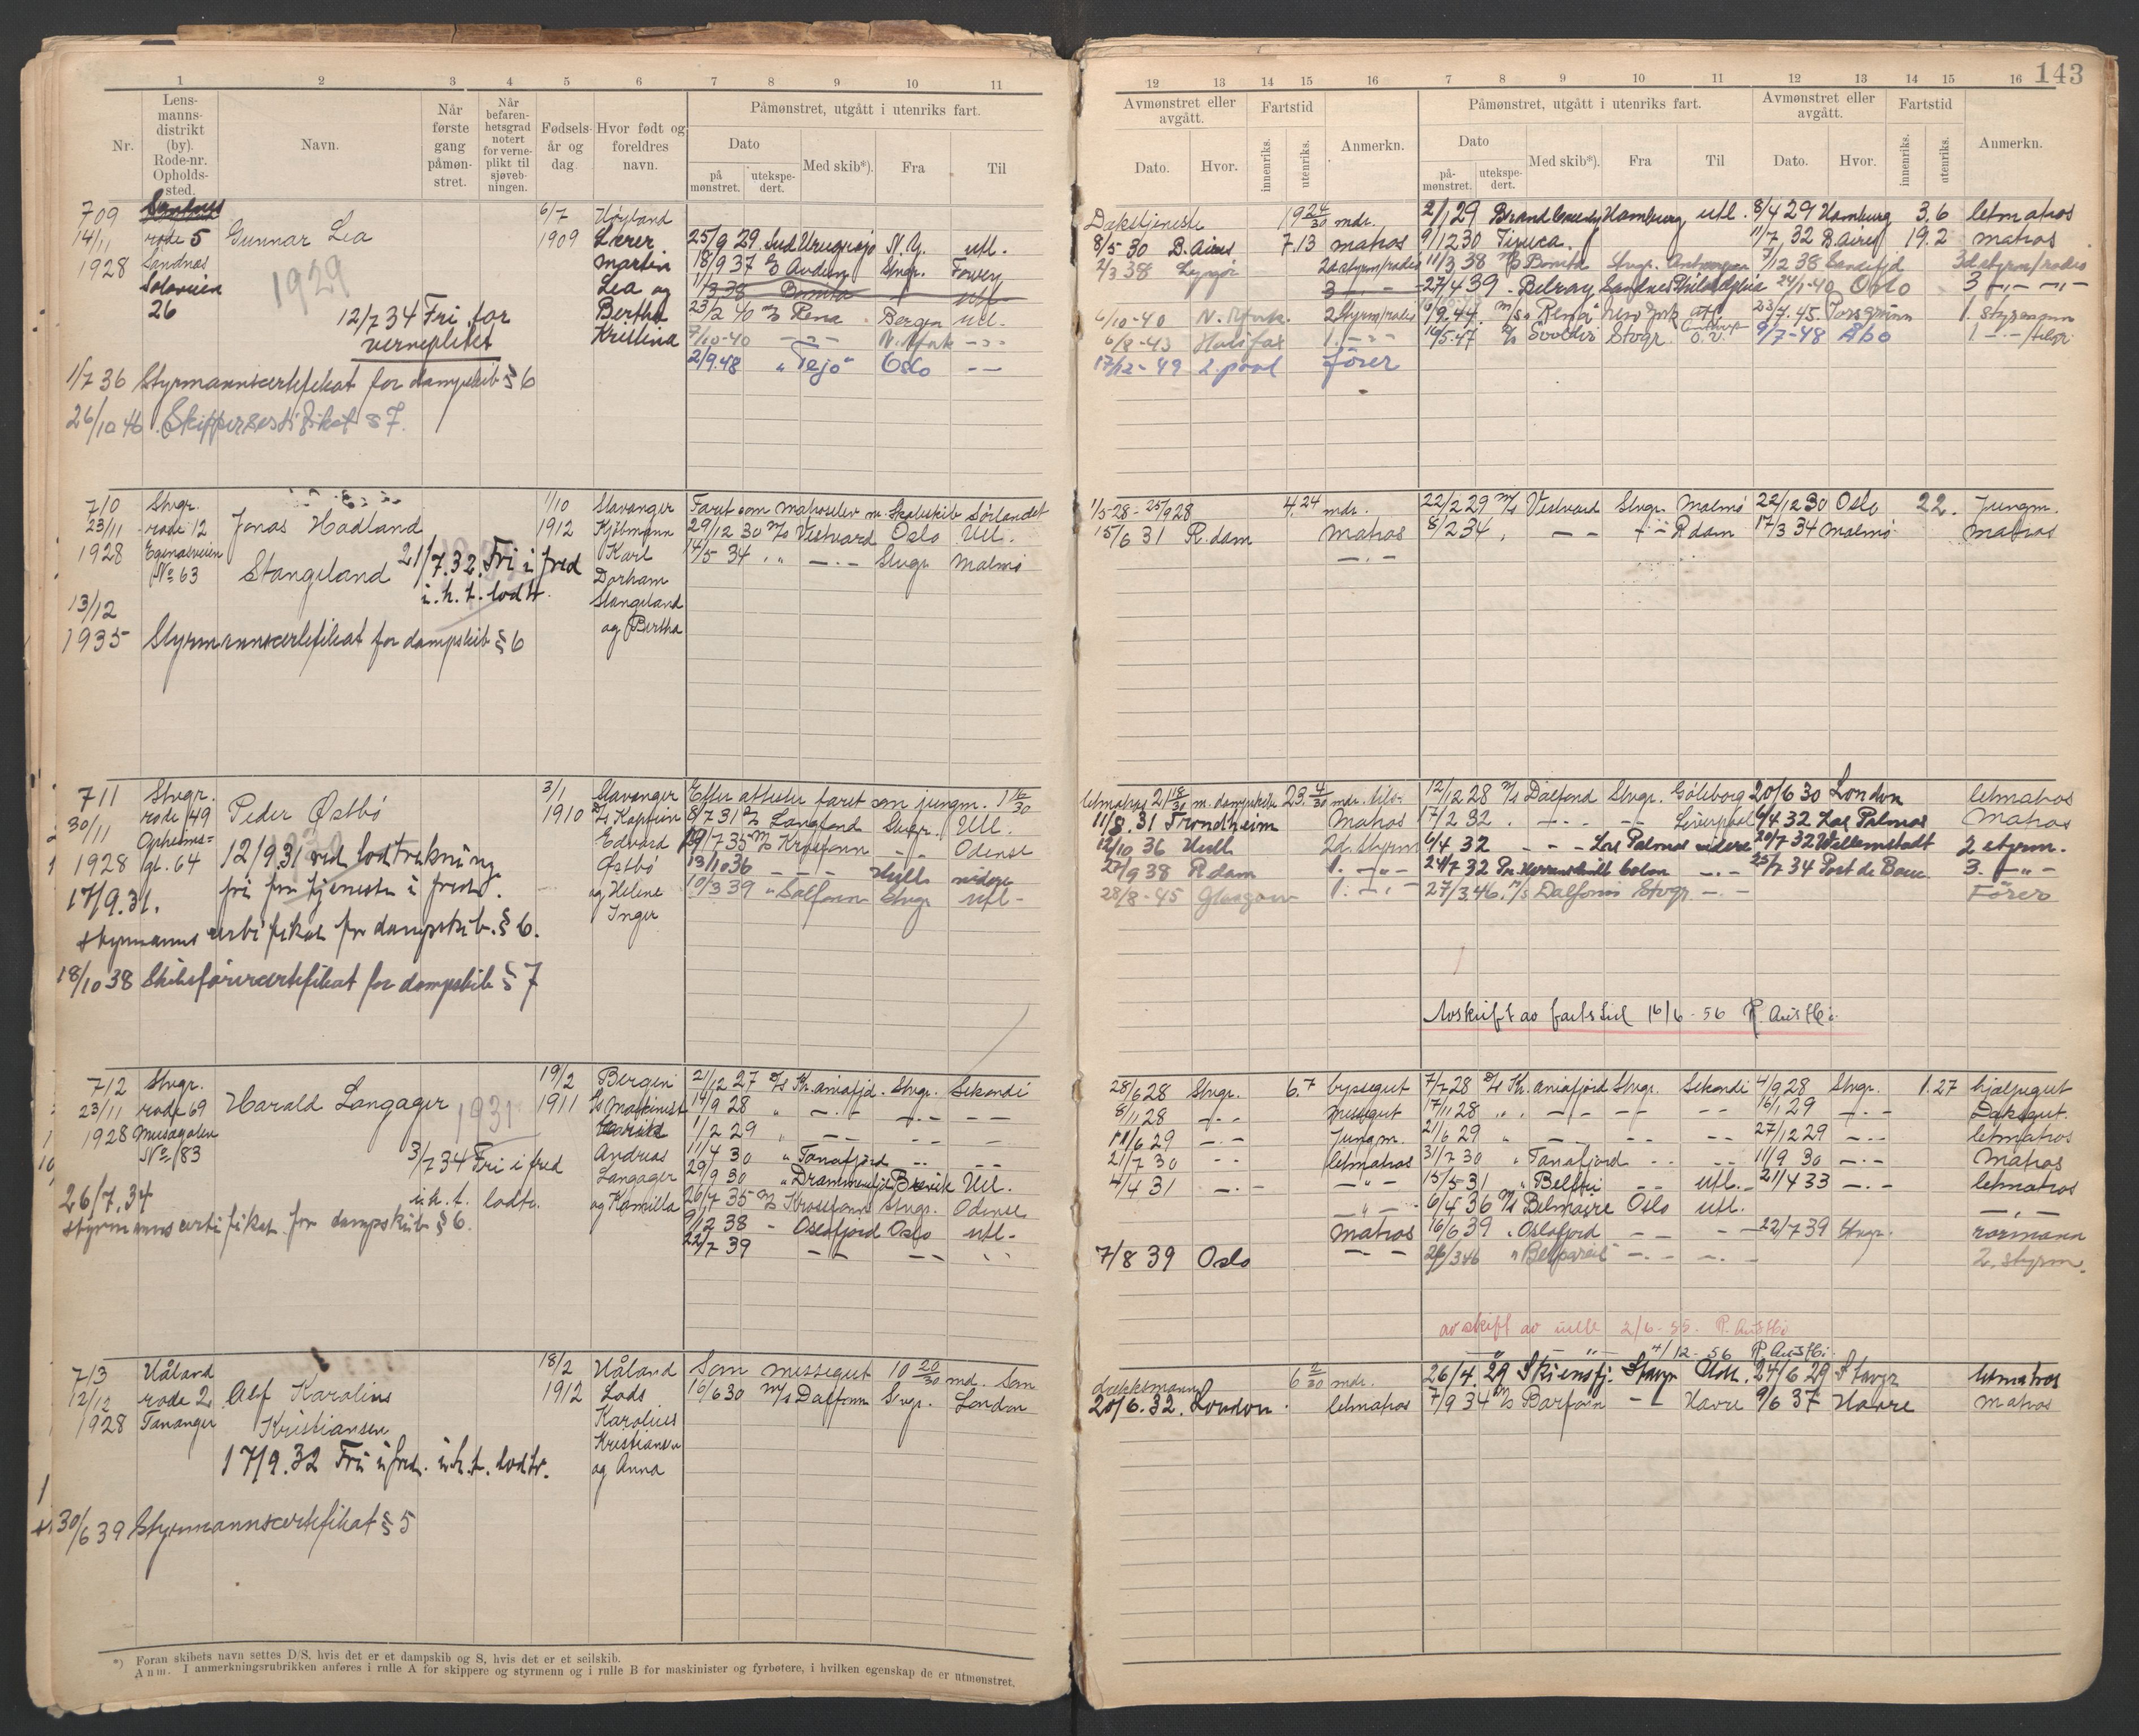 143
1 2 3 4 5 6 7 8 9 10 11
12 13 14 15 16 7 8 9 10 11 12 13 14 15 16
Nr.
Lens-
manns-
distrikt
(by).
Rode-nr.
Opholds-
sted.
Navn.
Når
første
gang
påmøn-
stret.
Når
befaren-
hetsgrad
notert
for verne-
plikt til
sjøveb-
ningen.
Fødsels-
år og
dag.
Hvor født og
foreldres
navn.
Påmønstret, utgått i utenriks fart.
Dato
på
mønstret.
utekspe-
dert.
Med skib*).
Fra
Til
Avmønstret eller
avgått.
Dato. Hvor.
Fartstid
innenriks.
utenriks.
Anmerkn.
Påmønstret, utgått i utenriks fart.
Dato
på-
mønstret.
utekspe-
dert.
Med skib*).
Fra
Til
Avmønstret eller
avgått.
Dato. Hvor.
Fartstid
innenriks.
utenriks.
Anmerkn.
709
14/11
1928
rode 5
Sandnes
Solaveien
26
Gunnar Lea
1929
12/7 34 Fri for
verneplikt
6/7
1909
Høyland
Lærer
Martin
Lea og
Bertha
Kristina
25/9 29 Sud Uruguayo N.Y. utl.
18/9 37 Stvgr. Fowey
1/3 38 Bonita utl
23/2 40 M/S Rena Bergen utl.
7/10-40 N. York
2/9.48 "Tejo" Oslo
1/7 36 Styrmannscertifikat for dampskib § 6
26/10 46 Skippersertifikat § 7.
Dekstjeneste 19 24/30 mdr. 2/1 29 Hamburg utl. 8/4 29 Hamburg 3.6 letmatros
8/5 30 B. Aires 7.13 matros 9/12 30 Tijuca 11/7 32 B. Aires 19.2 matros
2/3 38 Lyngør 2d styrm/radio 11/3 38 M/S Bonita Stvgr. 7/12 38 Sandefjd 3d styrm/radio
27/4 39 Belray Sandnes Philadelphia 24/1-40 Oslo
6/10-40 N. York 2 styrm/radio 16/9.44. M/S Rena New York 23/7.45 Porsgrunn 1. styrmann
6/8-43 Halifax 16/5-47 Stvgr. 9/7-48 Åbo
17/12-49 L.pool fører
710
23/11
1928
Stvgr.
rode 12
Egenesveien
No 63
Jonas Hadland
Stangeland
21/7.32. Fri i fred
i.h.t. lodtr.
1/10
1912
Stavanger
Kjøbmann
Karl
Dorham
Stangeland
og Bertha
Faret som matroselev m. Skoleskib Sørlandet
29/12 30 M/S Vestvard Oslo Utl.
14/5 34 Stvgr. Malmö
13/12
1935 Styrmannscertifikat for dampskib § 6
1/5-28 - 25/9 28 4.24 mdr. 22/2 29 M/S Vestvard Stvgr. Malmö 22/12 30 Oslo 22. Jungm.
15/6 31 R.dam matros 8/2 34 R.dam 17/3 34 Malmö matros
711
30/11
1928
Stvgr.
rode 49
Opheims-
gt. 64
Peder Østbö
1930
12/9.31 ved lodtrekning
fri for tjeneste i fred.
3/1
1910
Stavanger
D/S Kaptein
Edvard
Østbö
og Helene
Inger
Efter attester faret som jungm. 1 16/30
8/7 31 Langland Stvgr. Utl.
19/7 35 M/S Krosfonn Odense
13/10 36 Hull videre
10/3 39 Dalfonn Stvgr utl-
17/9.31.
styrmannscertifikat for dampskib. § 6.
18/10 38 Skibsførercertifikat for dampskib § 7
letmatros 21 18/30 m. dampskibe 23 4/30 mdr. 12/12 28 M/S Dalfond Stvgr. Göteborg 20/6 30 London letmatros
11/8.31 Trondheim Matros 17/2 32 Liverpool 6/4 32 Las Palmas Matros
12/10 36 Hull 2d styrm 6/4 32 Las Palmas videre 20/7 32 Willemstadt 2 styrm.
27/9 38 R.dam 24/7 32 25/7 34 Port de Bouc 3.
28/8-45 Glasgow 27/3.46. M/S Dalfonn Stvgr Fører
Avskrift av fartstid 16/6-56 R. Austbø
712
23/11
1928
Stvgr.
rode 69
Musegaten
No 183
Harald Langager
1931
3/7 34 Fri i fred
i.h.t. lodtr.
19/2
1911
Bergen
Maskinist
Andreas
Langager
og Kamilla
21/12 27 D/S Kr.aniafjd. Stvgr. Sekondi
14/9 28
1/2 29
11/4 30 Tanafjord
29/9 30 Drammensfjd Brevik Utl.
26/7 35 M/S Krosfonn Stvgr. Odense
9/12 38 Oslofjord Oslo utl-
22/7 39
26/7.34
styrmannscertifikat for dampskib § 6.
28/6 28 Stvgr. 6.7 byssegut 7/7 28 D/S Kr.aniafjord Stvgr. Sekondi 4/9 28 Stvgr. 1.27 hjælpegut
8/11 28 messegut 17/11 28 16/1 29 Deksgut.
11/6 29 Jungm. 21/6 29 27/12 29 letmatros
21/7 30 letmatros 31/7 30 Tanafjord 11/9 30 Matros
4/4 31 15/5 31 utl. 21/4 33 letmatros
6/4 36 M/S Belmoire Oslo utl.
Matros 16/6 39 Oslofjord 22/7 39 Stvgr. rormann
7/8 39 Oslo 26/3 46 Belpareil 2. styrm.
avskift av rulle 2/6-55. R. Austbø
4/12-56 R. Austbø
713
12/12
1928
Håland
rode 2
Tananger
Alf Karolius
Kristiansen
17/9.32 Fri i fred. i.h.t. lodtr.
18/2
1912
Håland
Lods
Karolius
Kristiansen
og Anna
Som messegut 10 20/30 md. Som
16/6 30 M/S Dalfonn Svgr. London
30/6 39 Styrmannscertifikat § 5
dækksmann 6 2/30 mdr. 26/4.29 Skiensfj. Stavgr Utl. 24/6 29 Stavgr letmatros
20/6.32. London letmatros 7/9 34 M/S Barfonn Havre 9/6 37 Havre matros
*) Foran skibets navn settes D/S, hvis det er et dampskib og S, hvis det er et seilskib.
Anm. I anmerkningsrubrikken anføres i rulle A for skippere og styrmenn og i rulle B for maskinister og fyrbøtere, i hvilken egenskap de er utmønstret.